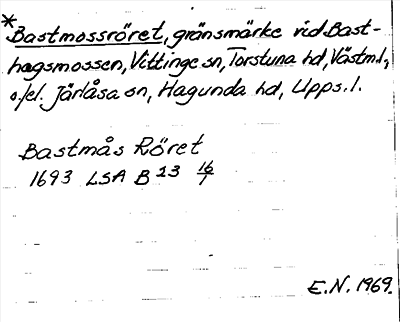 *
Bastmossröret, gränsmärke vid Bast-
hagsmossen, Vittinge sn, Torstuna hd, Västml.,
o./el. Järlåsa sn, Hagunda hd, Upps. l.
Bastmås Röret
1693 LSA B 23 16/1
E.N. 1969.